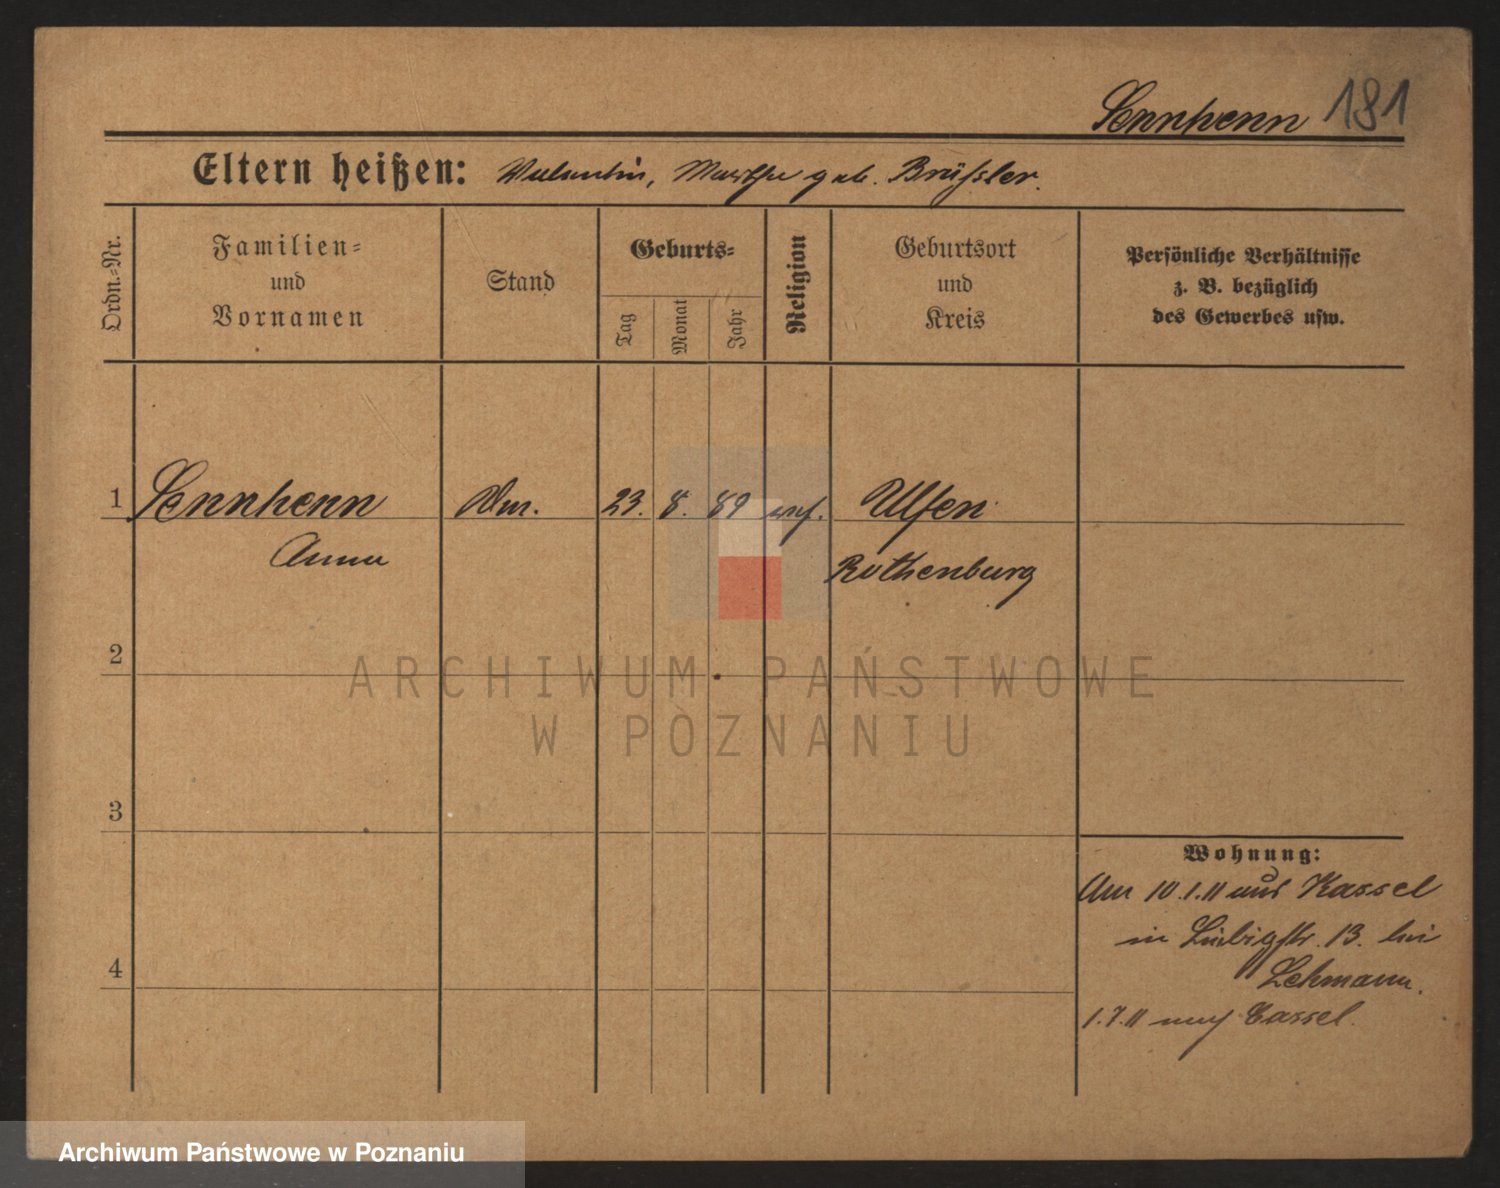 Sennhenn 181
Eltern heißen: Valentin, Marthe geb. Brüssler.
Ordn.-Nr.
Familien-
und
Vornamen
Stand
Geburts-
Tag
Monat
Jahr
Religion
Geburtsort
und
Kreis
Persönliche Verhältnisse
z. B. bezüglich
des Gewerbes usw.
1 Sennhenn 23. 8. 89 Ulfen
Anna Rothenburg
2
ARCHIWUM PAŃSTWOWE
W POZNANIU
3
Wohnung:
Am 10.1.11 aus Kassel
in Liebigstr. 13. bei
4 Lehmann.
1.7.11 nach Cassel.
Archiwum Państwowe w Poznaniu